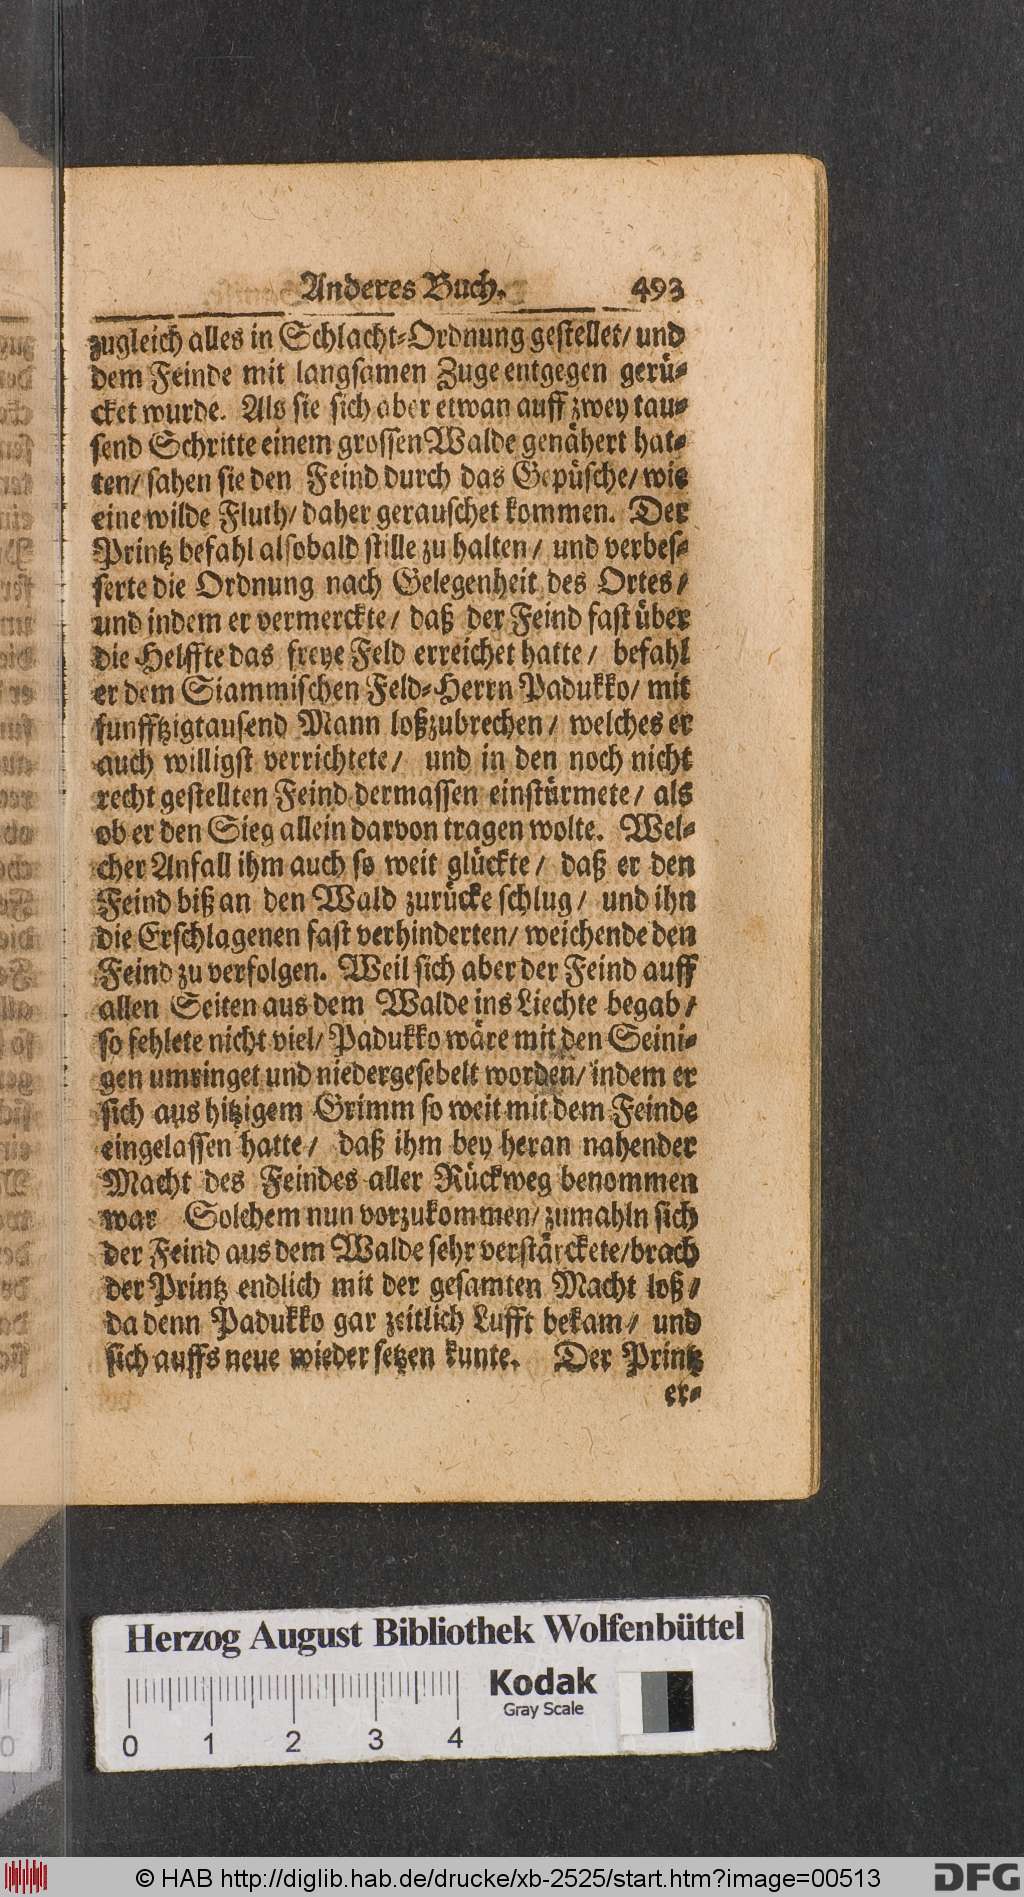 Anderes Buch. 493
zugleich alles in Schlacht-Ordnung gestellet/ und
dem Feinde mit langsamen Zuge entgegen gerü-
cket wurde. Als sie sich aber etwan auff zwey tau-
send Schritte einem grossen Walde genähert hat-
ten/ sahen sie den Feind durch das Gepüsche/ wie
eine wilde Fluth/ daher gerauschet kommen. Der
Printz befahl alsobald stille zu halten/ und verbes-
serte die Ordnung nach Gelegenheit des Ortes/
und indem er vermerckte/ daß der Feind fast über
die Helffte das freye Feld erreichet hatte/ befahl
er dem Siammischen Feld-Herrn Padukko/ mit
funfftzigtausend Mann loßzubrechen/ welches er
auch willigst verrichtete/ und in den noch nicht
recht gestellten Feind dermassen einstürmete/ als
ob er den Sieg allein darvon tragen wolte. Wel-
cher Anfall ihm auch so weit glückte/ daß er den
Feind biß an den Wald zurücke schlug/ und ihn
die Erschlagenen fast verhinderten/ weichende den
Feind zu verfolgen. Weil sich aber der Feind auff
allen Seiten aus dem Walde ins Liechte begab/
so fehlete nicht viel/ Padukko wäre mit den Seini-
gen umringet und niedergesebelt worden/ indem er
sich aus hitzigem Grimm so weit mit dem Feinde
eingelassen hatte/ daß ihm bey heran nahender
Macht des Feindes aller Rückweg benommen
war Solchem nun vorzukommen/ zumahln sich
der Feind aus dem Walde sehr verstärckete/ brach
der Printz endlich mit der gesamten Macht loß/
da denn Padukko gar zeitlich Lufft bekam/ und
sich auffs neue wieder setzen kunte. Der Printz
er-
Herzog August Bibliothek Wolfenbüttel
Kodak
Gray Scale
0 1 2 3 4
© HAB http://diglib.hab.de/drucke/xb-2525/start.htm?image=00513
DFG